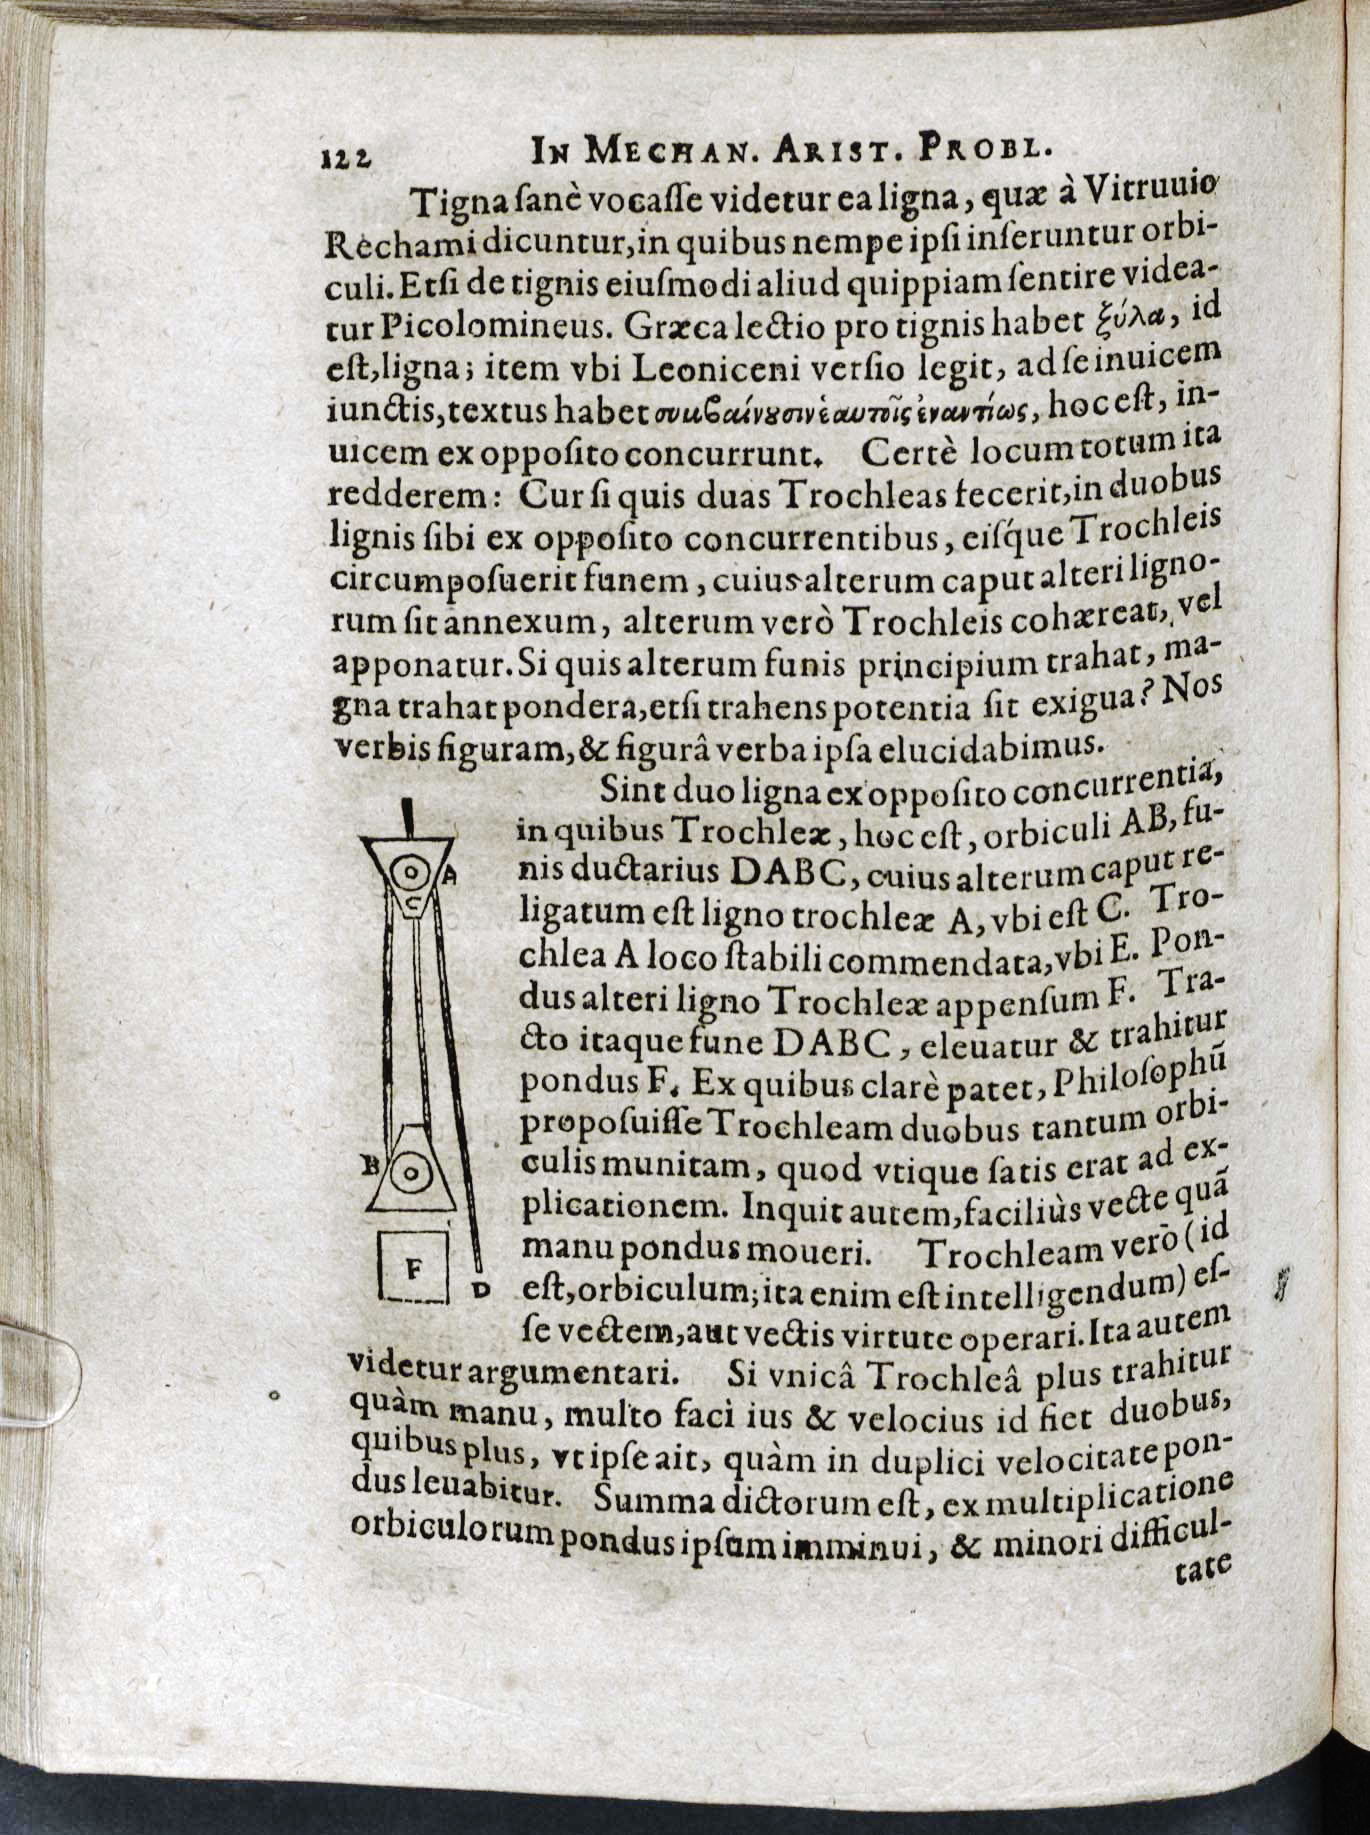 122 IN MECHAN. ARIST. PROBL.
Tigna ſanè vocaſſe videtur ea ligna, quæ à Vitruuio
Rechami dicuntur, in quibus nempe ipſi inſeruntur orbi-
culi. Etſi de tignis eiuſmodi aliud quippiam ſentire videa-
tur Picolomineus. Græca lectio pro tignis habet ξύλα, id
eſt, ligna; item vbi Leoniceni verſio legit, ad ſe inuicem
iunctis, textus habet συμβαίνουσιν ἑαυτοῖς ἐναντίως, hoc eſt, in-
uicem ex oppoſito concurrunt. Certè locum totum ita
redderem: Cur ſi quis duas Trochleas fecerit, in duobus
lignis ſibi ex oppoſito concurrentibus, eiſq́ue Trochleis
circumpoſuerit funem, cuius alterum caput alteri ligno-
rum ſit annexum, alterum verò Trochleis cohæreat, vel
apponatur. Si quis alterum funis principium trahat, ma-
gna trahat pondera, etſi trahens potentia ſit exigua? Nos
verbis figuram, & figurâ verba ipſa elucidabimus.
Sint duo ligna ex oppoſito concurrentia,
in quibus Trochleæ, hoc eſt, orbiculi AB, fu-
nis ductarius DABC, cuius alterum caput re-
ligatum eſt ligno trochleæ A, vbi eſt C. Tro-
chlea A loco ſtabili commendata, vbi E. Pon-
dus alteri ligno Trochleæ appenſum F. Tra-
cto itaque fune DABC, eleuatur & trahitur
pondus F. Ex quibus clarè patet, Philoſophũ
propoſuiſſe Trochleam duobus tantum orbi-
culis munitam, quod vtique ſatis erat ad ex-
plicationem. Inquit autem, faciliùs vecte quã
manu pondus moueri. Trochleam verō (id
eſt, orbiculum; ita enim eſt intelligendum) eſ-
ſe vectem, aut vectis virtute operari. Ita autem
videtur argumentari. Si vnicâ Trochleâ plus trahitur
quàm manu, multo faci ius & velocius id fiet duobus,
quibus plus, vt ipſe ait, quàm in duplici velocitate pon-
dus leuabitur. Summa dictorum eſt, ex multiplicatione
orbiculorum pondus ipſum imminui, & minori difficul-
tate
A
C
B
F
D